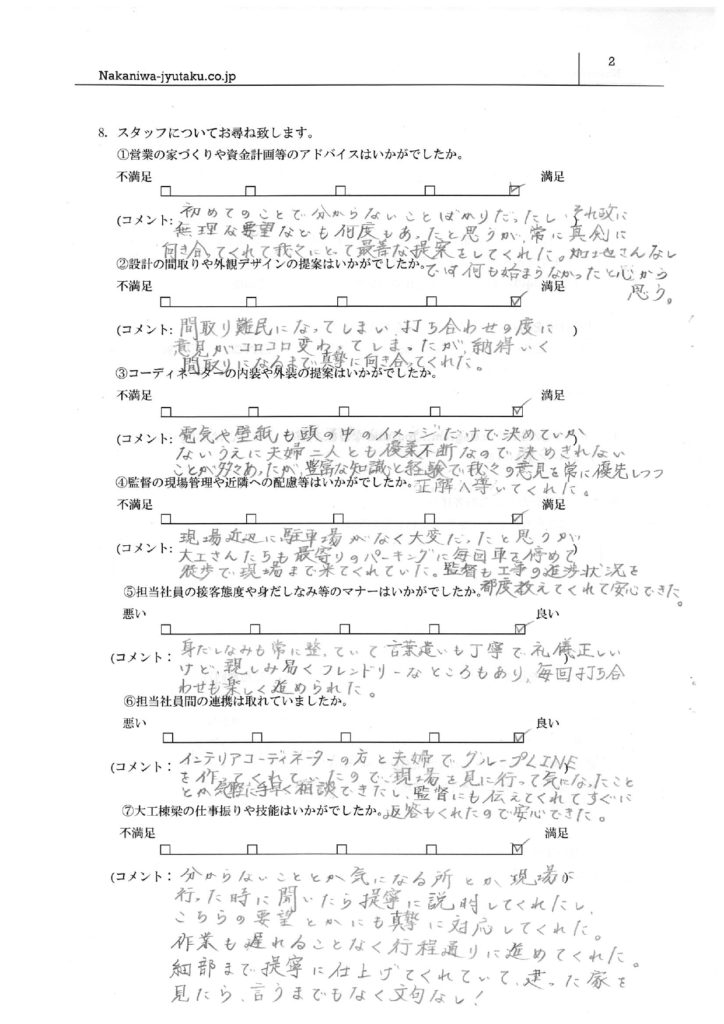 Nakaniwa-jyutaku.co.jp
2
8. スタッフについてお尋ね致します。
①営業の家づくりや資金計画等のアドバイスはいかがでしたか。
不満足 満足
(コメント: 初めてのことで分からないことばかりだったし、それ故に )
無理な要望なども何度もあったと思うが、常に真剣に
向き合ってくれて我々にとって最善な提案をしてくれた。加世さんなし
では何も始まらなかったと心から
思う。
②設計の間取りや外観デザインの提案はいかがでしたか。
不満足 満足
(コメント: 間取り難民になってしまい、打ち合わせの度に )
意見がコロコロ変わってしまったが、納得いく
間取りになるまで真摯に向き合ってくれた。
③コーディネーターの内装や外装の提案はいかがでしたか。
不満足 満足
(コメント: 電気や壁紙も頭の中のイメージだけで決めていか )
ないうえに夫婦二人とも優柔不断なので決めきれない
ことが多々あったが、豊富な知識と経験で我々の意見を常に優先しつつ
正解へ導いてくれた。
④監督の現場管理や近隣への配慮等はいかがでしたか。
不満足 満足
(コメント: 現場近辺に駐車場がなく大変だったと思うが )
大工さんたちも最寄りのパーキングに毎回車を停めて
徒歩で現場まで来てくれていた。監督も工事の進捗状況を
都度教えてくれて安心できた。
⑤担当社員の接客態度や身だしなみ等のマナーはいかがでしたか。
悪い 良い
(コメント: 身だしなみも常に整っていて言葉遣いも丁寧で礼儀正しい )
けど、親しみ易くフレンドリーなところもあり、毎回打ち合
わせも楽しく進められた。
⑥担当社員間の連携は取れていましたか。
悪い 良い
(コメント: インテリアコーディネーターの方と夫婦でグループLINE )
を作ってくれていたので、現場を見に行って気になったこと
とか気軽に手早く相談できたし、監督にも伝えてくれてすぐに
返答もくれたので安心できた。
⑦大工棟梁の仕事振りや技能はいかがでしたか。
不満足 満足
(コメント: 分からないこととか気になる所とか、現場が
行った時に聞いたら提寧に説明してくれたし、
こちらの要望とかにも真摯に対応してくれた。
作業も遅れることなく行程通りに進めてくれた。
細部まで提寧に仕上げてくれていて、建った家を
見たら、言うまでもなく文句なし!